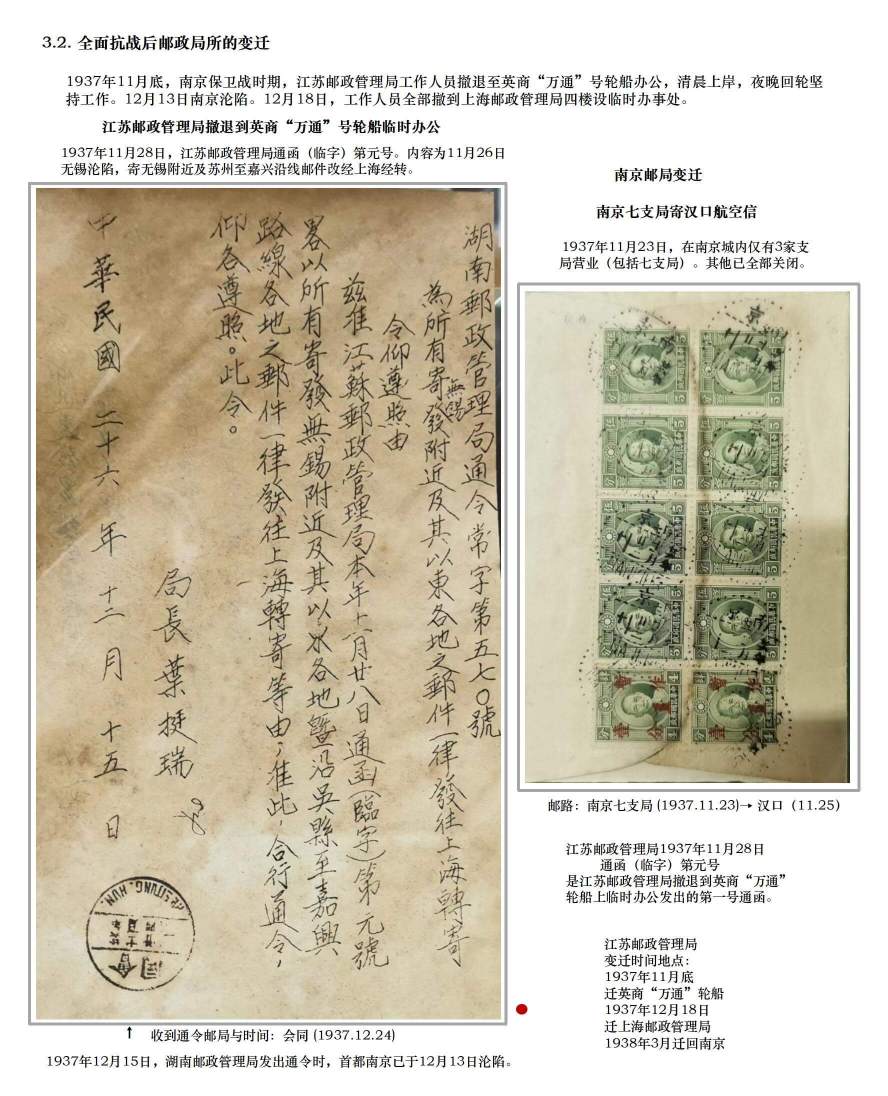 3.2. 全面抗战后邮政局所的变迁
1937年11月底，南京保卫战时期，江苏邮政管理局工作人员撤退至英商“万通”号轮船办公，清晨上岸，夜晚回轮坚
持工作。12月13日南京沦陷。12月18日，工作人员全部撤到上海邮政管理局四楼设临时办事处。
江苏邮政管理局撤退到英商“万通”号轮船临时办公
1937年11月28日，江苏邮政管理局通函（临字）第元号。内容为11月26日
无锡沦陷，寄无锡附近及苏州至嘉兴沿线邮件改经上海经转。
湖南郵政管理局通令常字第五七〇號
為所有寄發無錫附近及其以東各地之郵件一律發往上海轉寄
令仰遵照由
茲准江蘇郵政管理局本年十一月廿八日通函(臨字)第元號
畧以所有寄發無錫附近及其以水各地暨沿吳縣至嘉興
路線各地之郵件一律發往上海轉寄等由，准此，合行通令，
仰各遵照。此令。
局長葉挺瑞
中華民國二十六年十二月十五日
會同
南京邮局变迁
南京七支局寄汉口航空信
1937年11月23日，在南京城内仅有3家支
局营业（包括七支局）。其他已全部关闭。
邮路：南京七支局 (1937.11.23)→ 汉口（11.25）
江苏邮政管理局1937年11月28日
通函（临字）第元号
是江苏邮政管理局撤退到英商“万通”
轮船上临时办公发出的第一号通函。
江苏邮政管理局
变迁时间地点：
1937年11月底
迁英商“万通”轮船
1937年12月18日
迁上海邮政管理局
1938年3月迁回南京
↑ 收到通令邮局与时间：会同 (1937.12.24)
1937年12月15日，湖南邮政管理局发出通令时，首都南京已于12月13日沦陷。